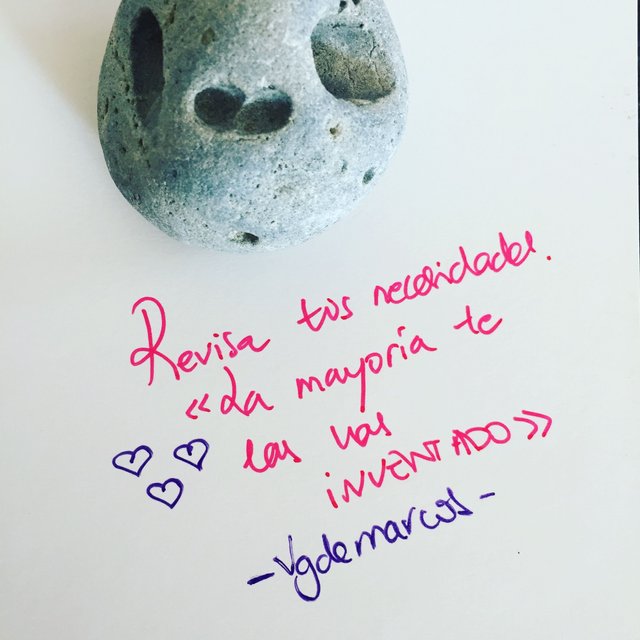 Revisa tus necesidades.
«La mayoría te
las has
iNVENTADO»
-vgdemarcos-